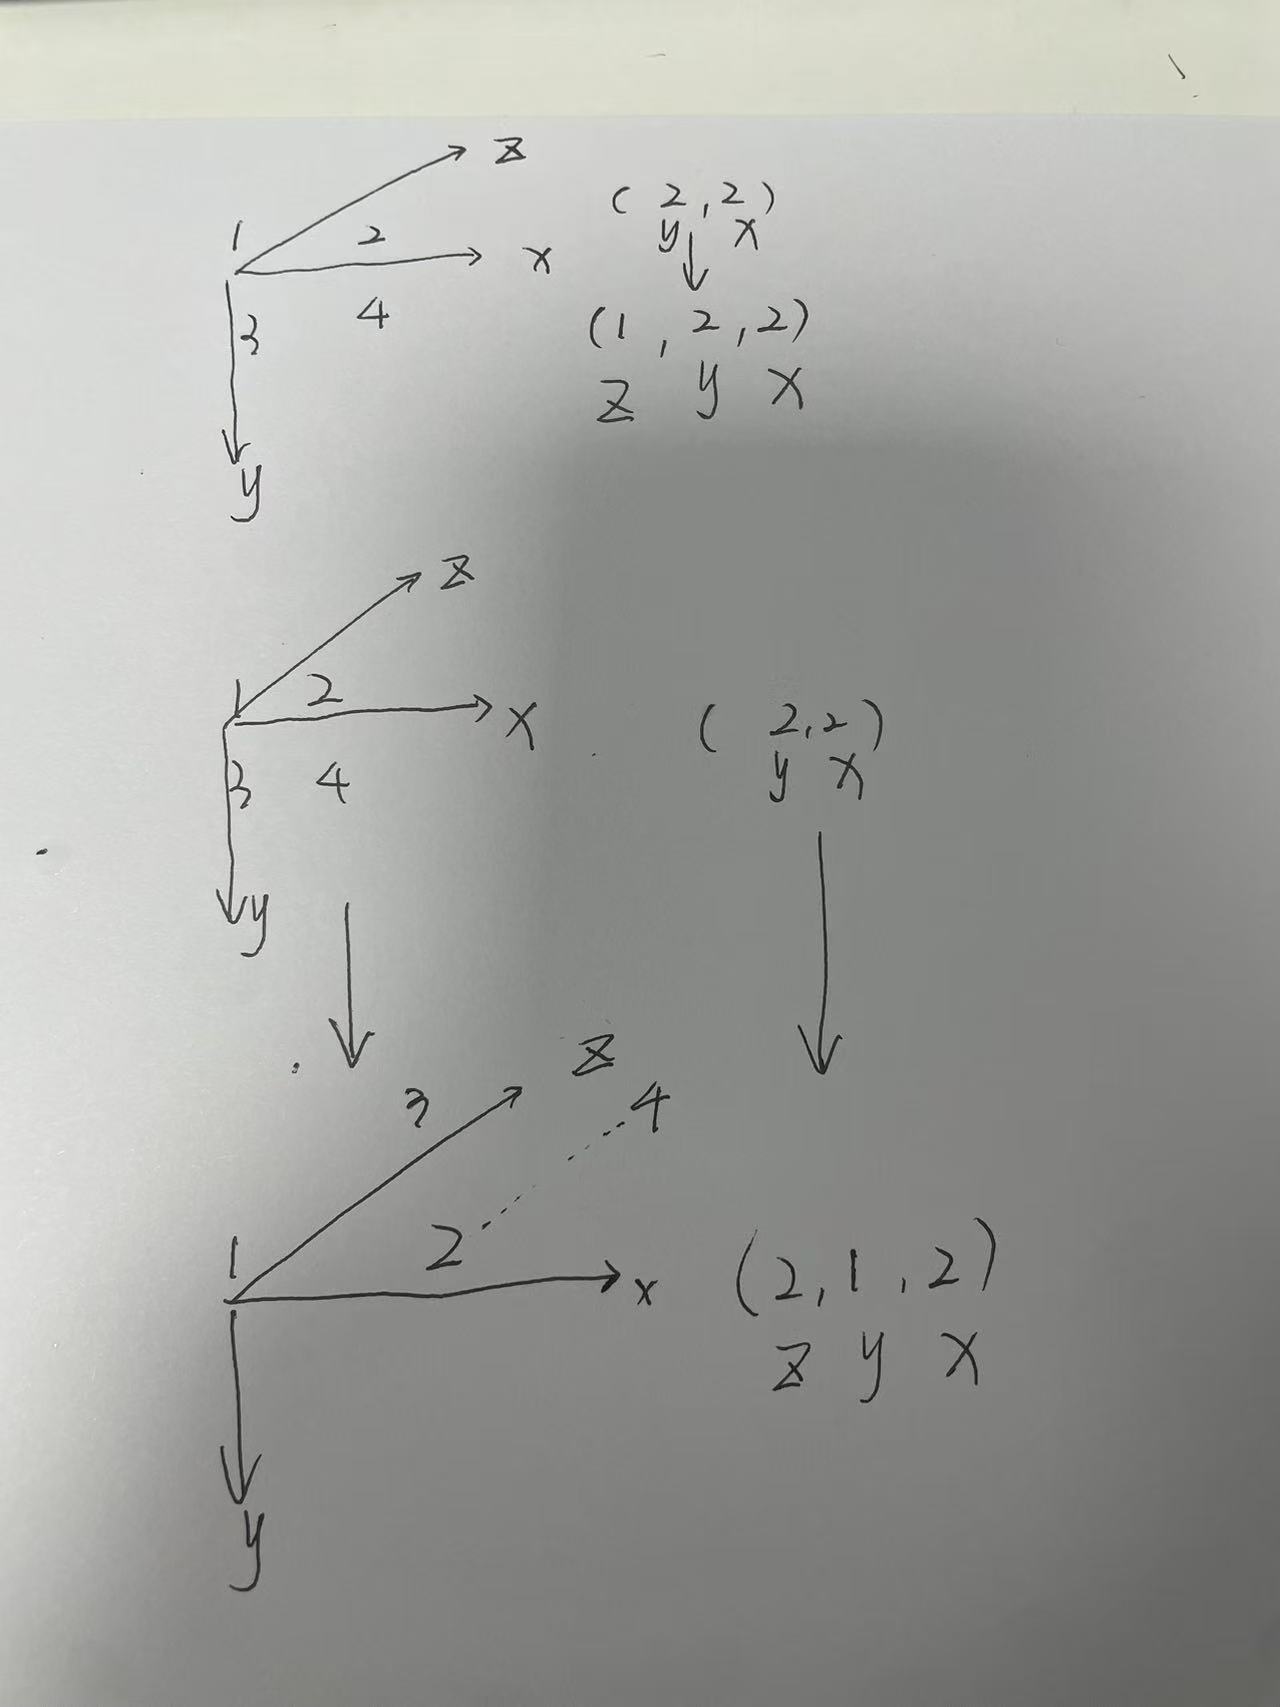 z
1 2 x
3 4
y
(2,2)
y x
(1,2,2)
z y x
z
1 2 x
3 4
y
(2,2)
y x
z
3 4
1 2 x
y
(2,1,2)
z y x